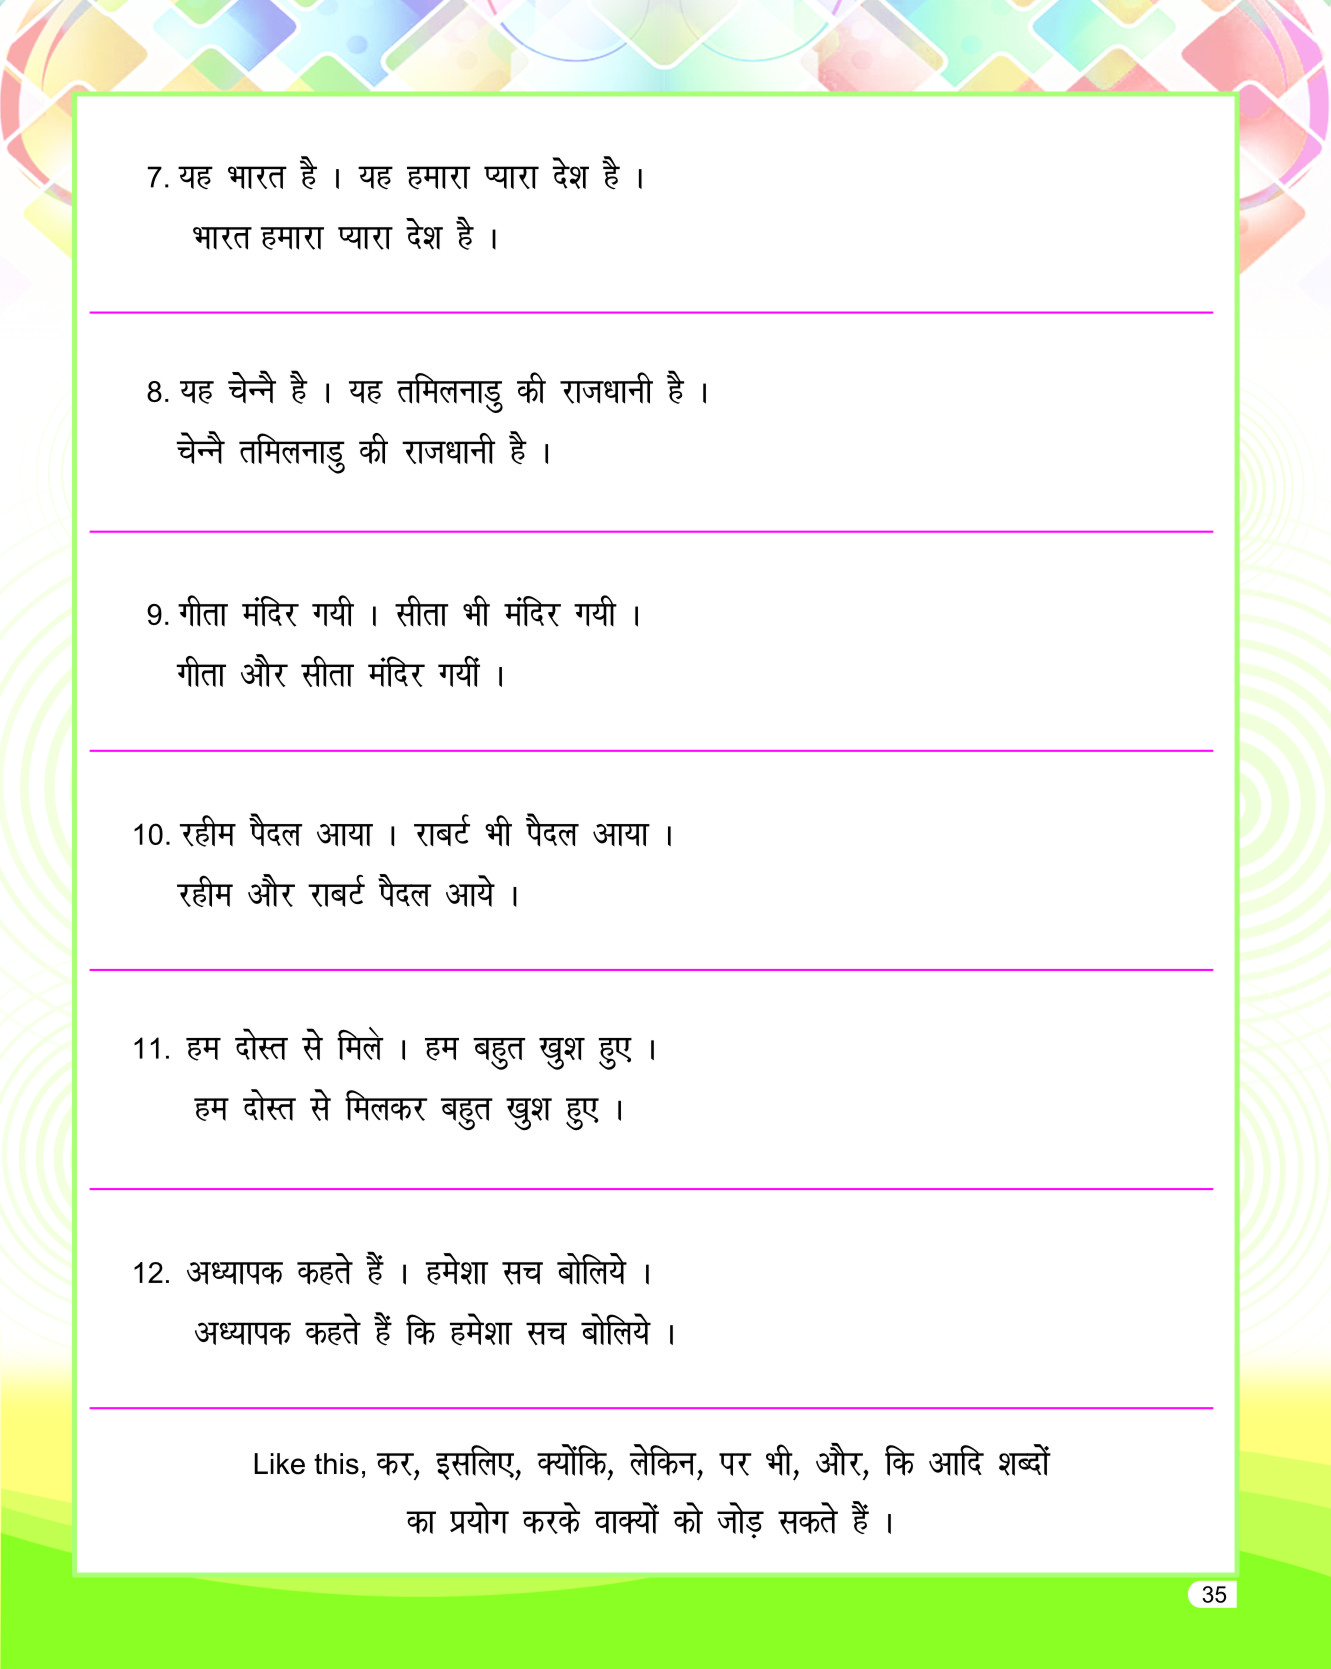 7. यह भारत है । यह हमारा प्यारा देश है ।
भारत हमारा प्यारा देश है ।
8. यह चेन्नै है । यह तमिलनाडु की राजधानी है ।
चेन्नै तमिलनाडु की राजधानी है ।
9. गीता मंदिर गयी । सीता भी मंदिर गयी ।
गीता और सीता मंदिर गयीं ।
10. रहीम पैदल आया । राबर्ट भी पैदल आया ।
रहीम और राबर्ट पैदल आये ।
11. हम दोस्त से मिले । हम बहुत खुश हुए ।
हम दोस्त से मिलकर बहुत खुश हुए ।
12. अध्यापक कहते हैं । हमेशा सच बोलिये ।
अध्यापक कहते हैं कि हमेशा सच बोलिये ।
Like this, कर, इसलिए, क्योंकि, लेकिन, पर भी, और, कि आदि शब्दों
का प्रयोग करके वाक्यों को जोड़ सकते हैं ।
35